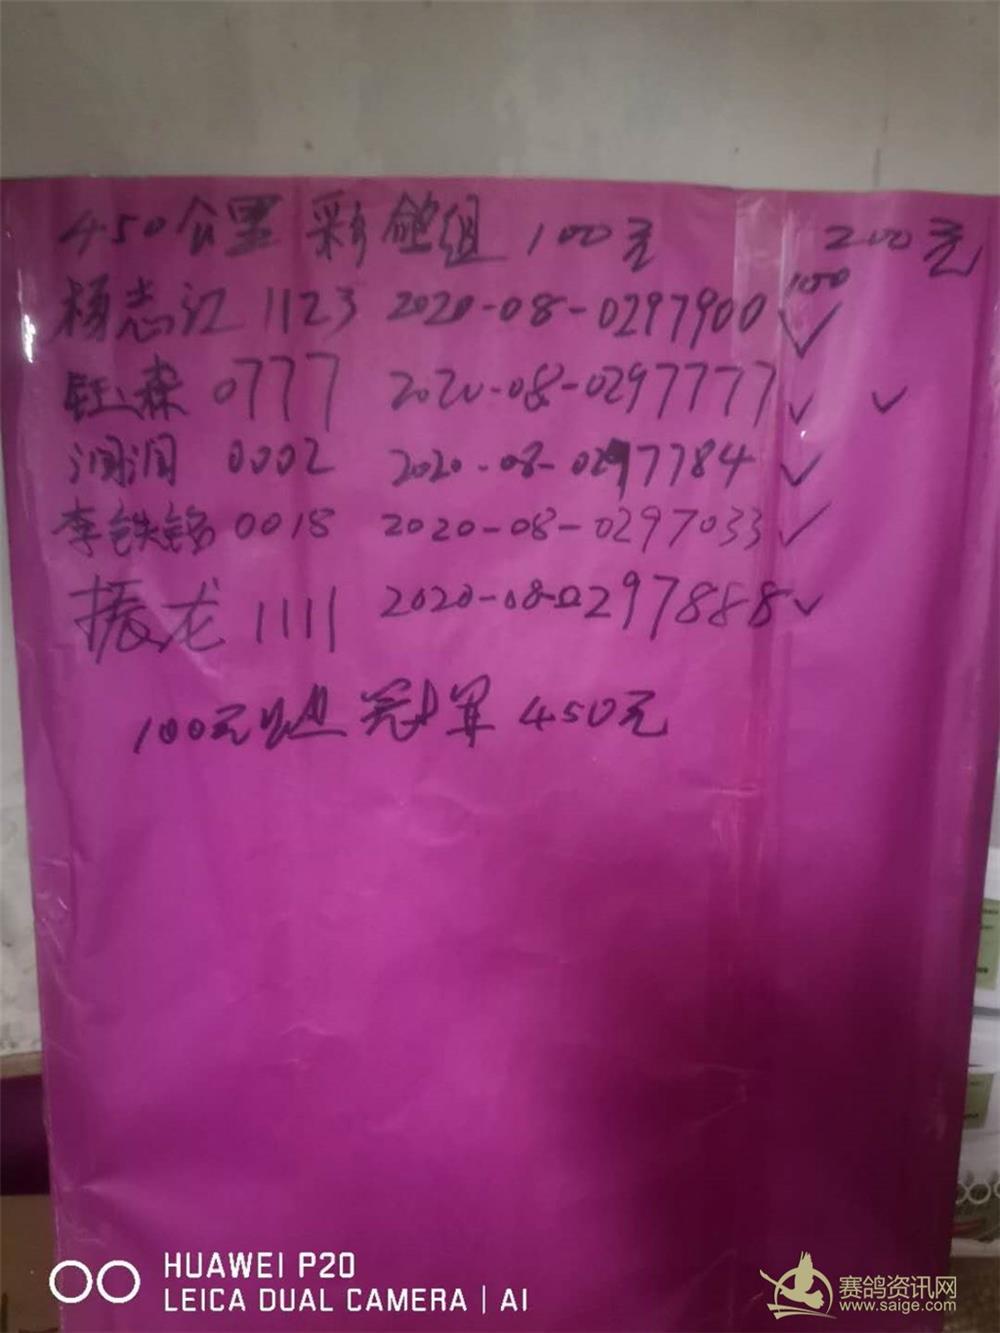 450公里 彩鸽组 100元 200元
100
杨志江 1123 2020-08-0297900 ✓
钰森 0777 2020-08-0297777 ✓ ✓
润润 0002 2020-08-0297784 ✓
李铁铭 0018 2020-08-0297033 ✓
振龙 1111 2020-08-0297888 ✓
100元 冠 军 450元
HUAWEI P20
LEICA DUAL CAMERA | AI
赛鸽资讯网
www.saige.com